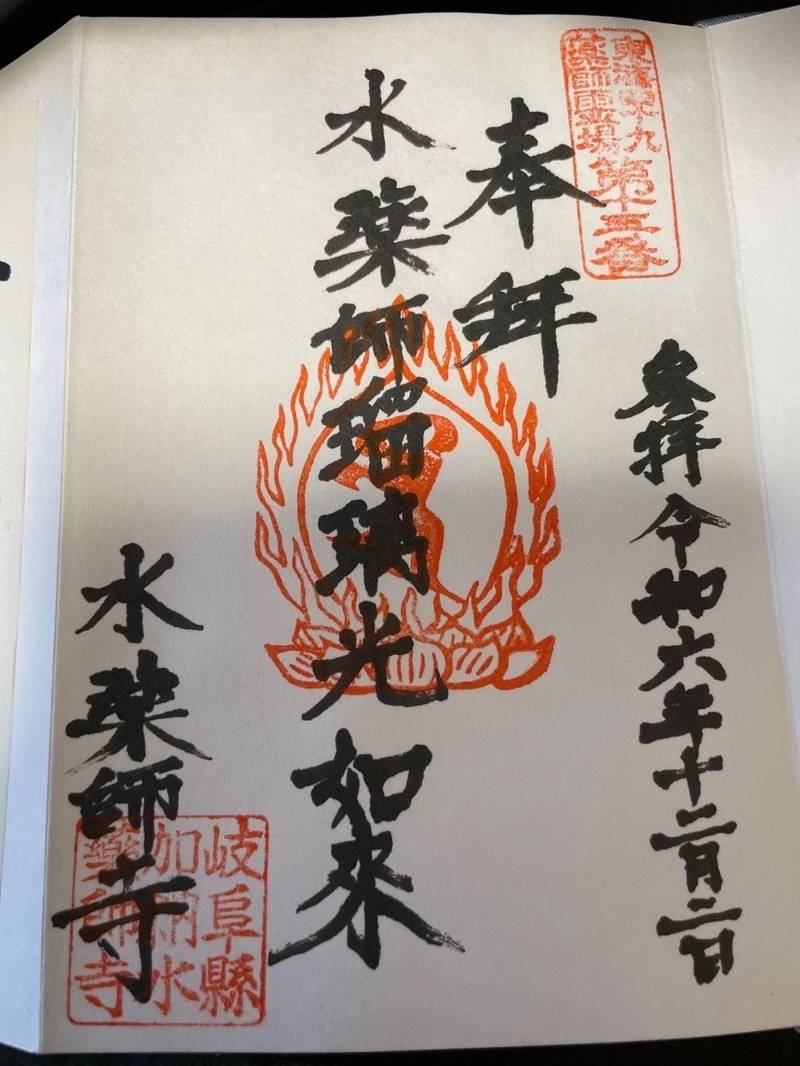 東海四十九
薬師霊場
参拝 令和六年十二月二日
奉拝
水薬師瑠璃光如来
水薬師寺
岐阜縣
加納水
藥師寺